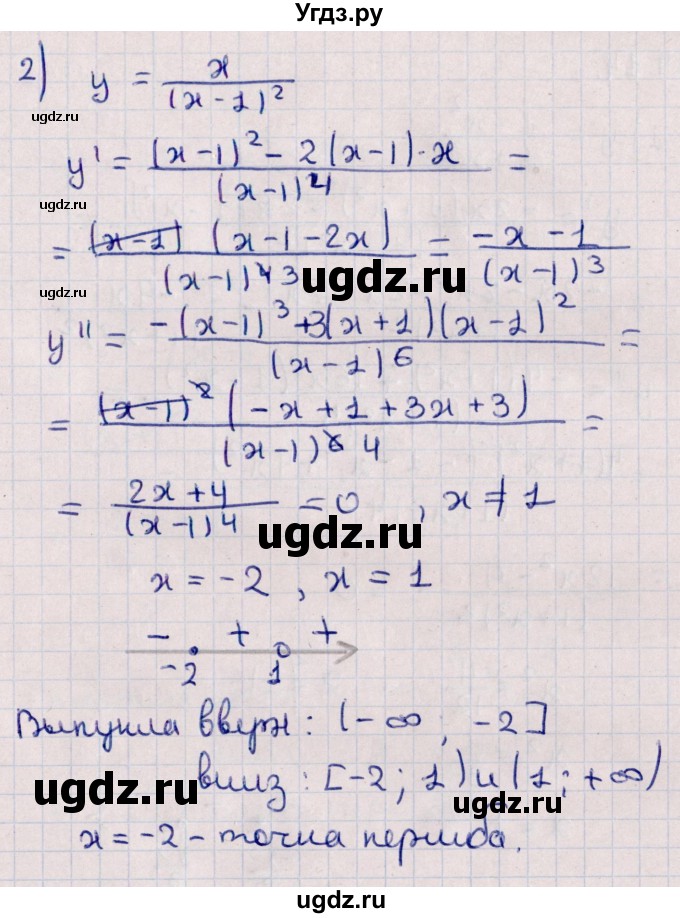 Угдз.ру
2) y = x / (x-1)²
ugdz.ru
y' = ((x-1)² - 2(x-1)·x) / (x-1)⁴ =
ugdz.ru
= (x-1)(x-1-2x) / (x-1)⁴ ³ = (-x-1) / (x-1)³
ugdz.ru
ugdz.ru
y'' = (-(x-1)³ + 3(x+1)(x-1)²) / (x-1)⁶ =
= (x-1)² (-x+1+3x+3) / (x-1)⁶ ⁴ =
= (2x+4) / (x-1)⁴ = 0 , x ≠ 1
ugdz.ru
x = -2 , x = 1
- + +
-2 1
Выпукла вверх: (-∞; -2]
ugdz.ru
вниз: [-2; 1) и (1; +∞)
ugdz.ru
x = -2 - точка перегиба.
ugdz.ru